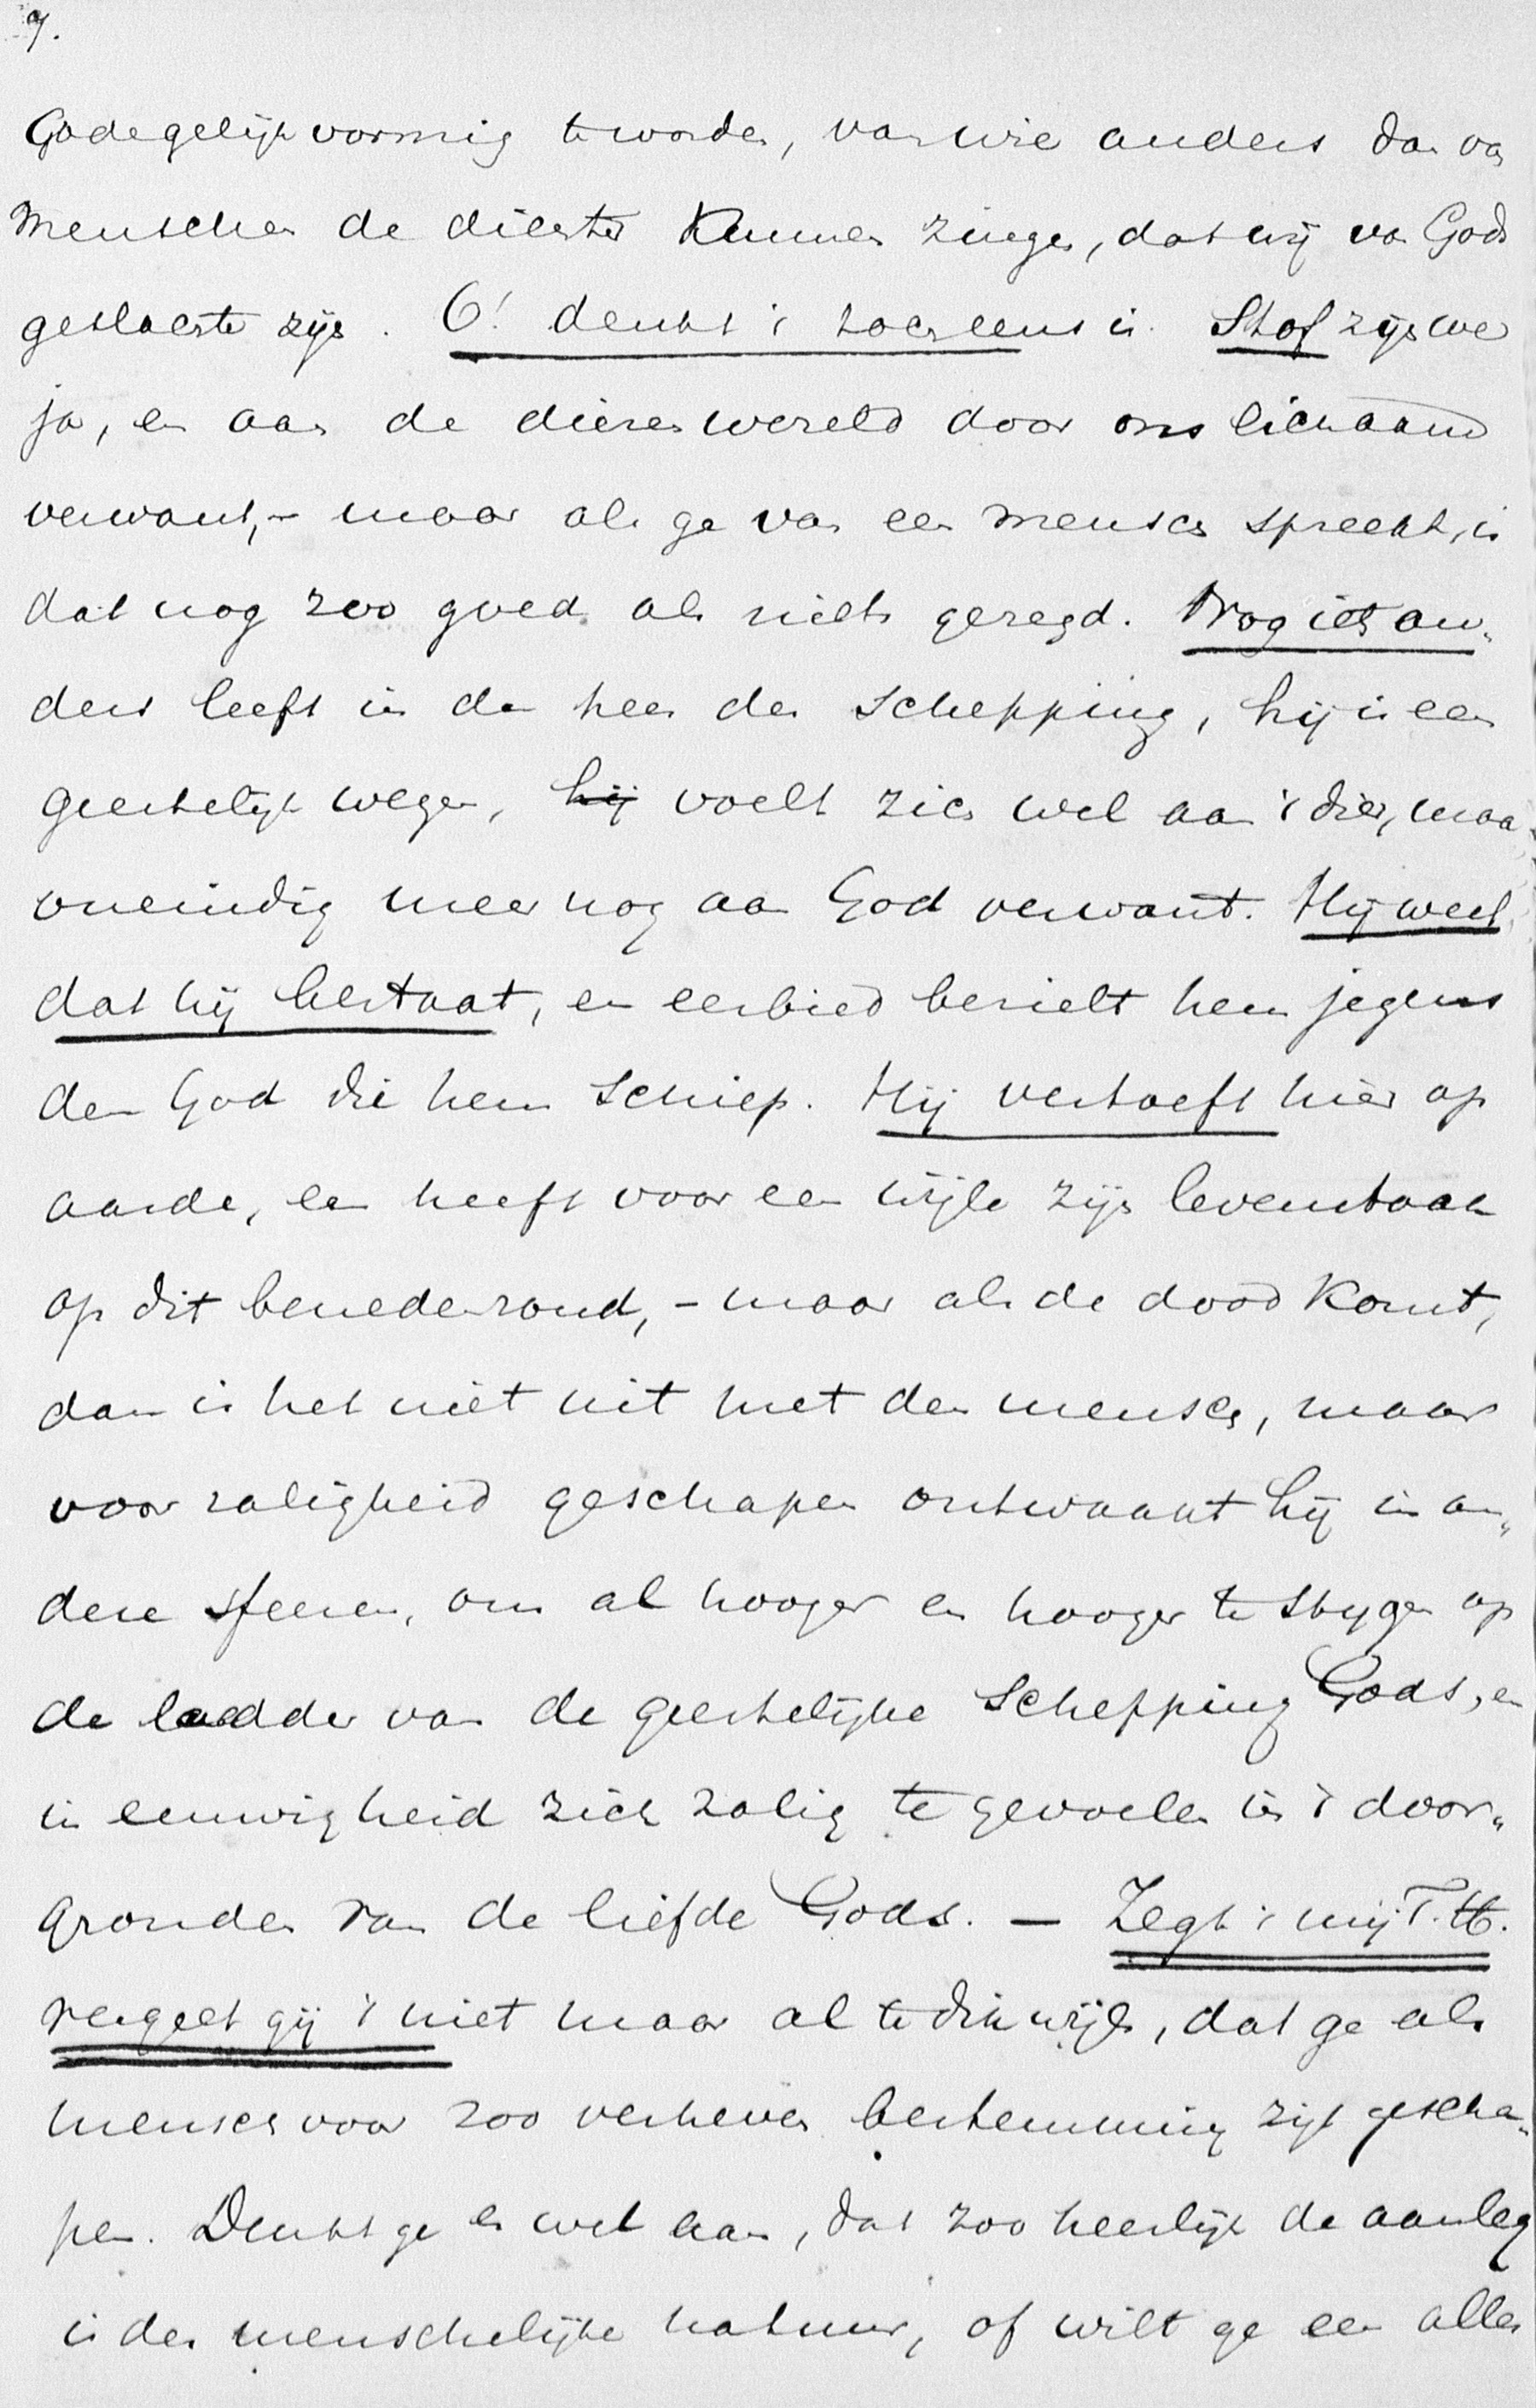 9.
Gode gelijkvormig te worden, van wie anders dan van
menschen de dichter kunnen zingen, dat wij van Gods
geslachte zijn. O! denkt 't toch eens in. Stof zijn we
ja, en aan de dierenwereld door ons lichaam
verwant, – maar als ge van een mensch spreekt, is
dat nog zoo goed als niets gezegd. Nog iets an„
ders leeft in den heer der schepping, hij is een
geestelijk wezen, hij voelt zich wel aan 't dier, maar
oneindig meer nog aan God verwant. Hij weet
dat hij bestaat, en eerbied bezielt hem jegens
den God die hem schiep. Hij vertoeft hier op
aarde, en heeft voor een wijle zijn levenstaak
op dit benedenrond, – maar als de dood komt,
dan is het niet uit met den mensch, maar
voor zaligheid geschapen ontwaakt hij in an„
dere sfeeren, om al hooger en hooger te stijgen op
de ladder van de geestelijke schepping Gods, en
in eeuwigheid zich zalig te gevoelen in 't door„
gronden van de liefde Gods. — Zegt 't mij T. H.
vergeet gij 't niet maar al te dikwijls, dat ge als
mensch voor zoo verheven bestemming zijt gescha„
pen. Denkt ge er wel aan, dat zoo heerlijk de aanleg
is der menschelijke natuur, of wilt ge een alles